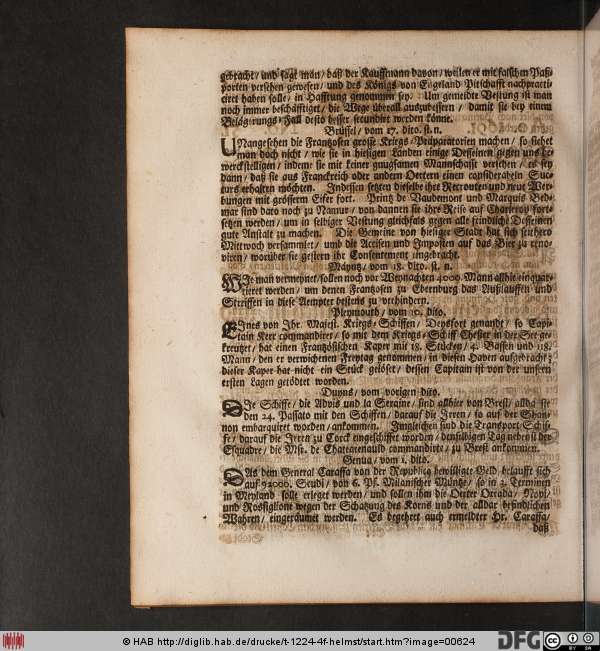 gebracht / und sagt man / daß der Kauffmann davon / weilen er mit falschen Paß-
porten versehen gewesen / und des Königs von Engeland Pitschafft nachpracti-
ciret haben solle / in Hafftung genommen sey. Um gemeldte Vestung ist man
noch immer beschäfftiget / die Wege überall auszubessern / damit sie bey einem
Belägerungs-Fall desto besser secundirt werden könne.
Brüssel / vom 17. dito. st. n.
UNangesehen die Frantzosen grosse Kriegs-Präparatorien machen / so siehet
man doch nicht / wie sie in hiesigen Landen einige Desseinen gegen uns be-
werckstelligen / indem sie mit keiner gnugsamen Mannschafft versehen / es sey
dann / daß sie aus Franckreich oder andern Oertern einen considerabeln Suc-
curs erhalten möchten. Indessen setzen dieselbe ihre Recrouten und neue Wer-
bungen mit grösserm Eifer fort. Printz de Vaudemont und Marquis Bed-
mar sind dato noch zu Namur / von dannen sie ihre Reise auf Charleroy fort-
setzen werden / um in selbiger Vestung gleichfals gegen alle feindliche Desseinen
gute Anstalt zu machen. Die Gemeine von hiesiger Stadt hat sich seithero
Mittwoch versammlet / umb die Accisen und Imposten auf das Bier zu reno-
viren / worüber sie gestern ihr Consentement eingebracht.
Mäyntz / vom 18. dito. st. n.
WIe man vermeynet / sollen noch vor Weynachten 4000. Mann allhie einquar-
tieret werden / um denen Frantzosen zu Ebernburg das Außlauffen und
Streiffen in diese Aempter bestens zu verhindern.
Pleymouth / vom 10. dito.
EInes von Ihr. Majest. Kriegs-Schiffen / Deptfort genandt / so Capi-
tain Kerr commandiret / so mit dem Kriegs-Schiff Chester in der See ge-
kreutzet / hat einen Frantzösischen Kaper mit 18. Stücken / 4. Bassen und 118.
Mann / den er verwichenen Freytag genommen / in diesen Haven aufgebracht;
dieser Kaper hat nicht ein Stück gelöset / dessen Capitain ist von der unsern
ersten Lagen getödtet worden.
Duyns / vom vorigen dito.
DIe Schiffe / die Advis und la Seraine / sind allhier von Brest / allda sie
den 24. Passato mit den Schiffen / darauf die Irren / so auf der Shan-
non embarquiret worden / ankommen. Imgleichen sind die Transport-Schif-
fe / darauf die Irren zu Corck eingeschiffet worden / denselbigen Tag nebenst der
Esquadre / die Msr. de Chateaurenauld commandirte / zu Brest ankommen.
Genua / vom 1. dito.
DAs dem General Caraffa von der Republicq bewilligte Geld belaufft sich
auf 92000. Scudi / von 6. Pf. Milanischer Müntze / so in 3. Terminen
in Meyland solle erleget werden / und sollen ihm die Oerter Ottada / Novi /
und Rossiglione wegen der Schatzung des Korns und der alldar befindlichen
Wahren / eingeräumet werden. Es begehret auch ermeldter Hr. Caraffa /
daß
© HAB http://diglib.hab.de/drucke/t-1224-4f-helmst/start.htm?image=00624
DFG
cc BY SA